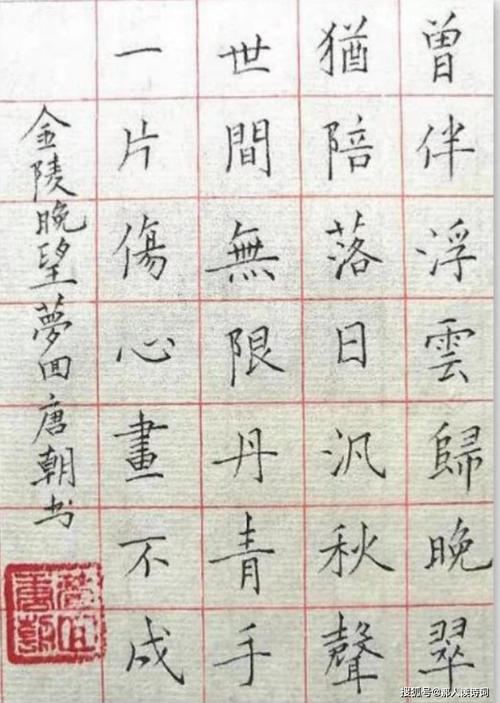 曾伴浮雲歸晚翠
猶陪落日汎秋聲
世間無限丹青手
一片傷心畫不成
金陵晚望夢回唐朝书
夢回唐朝
搜狐号@那人读诗词